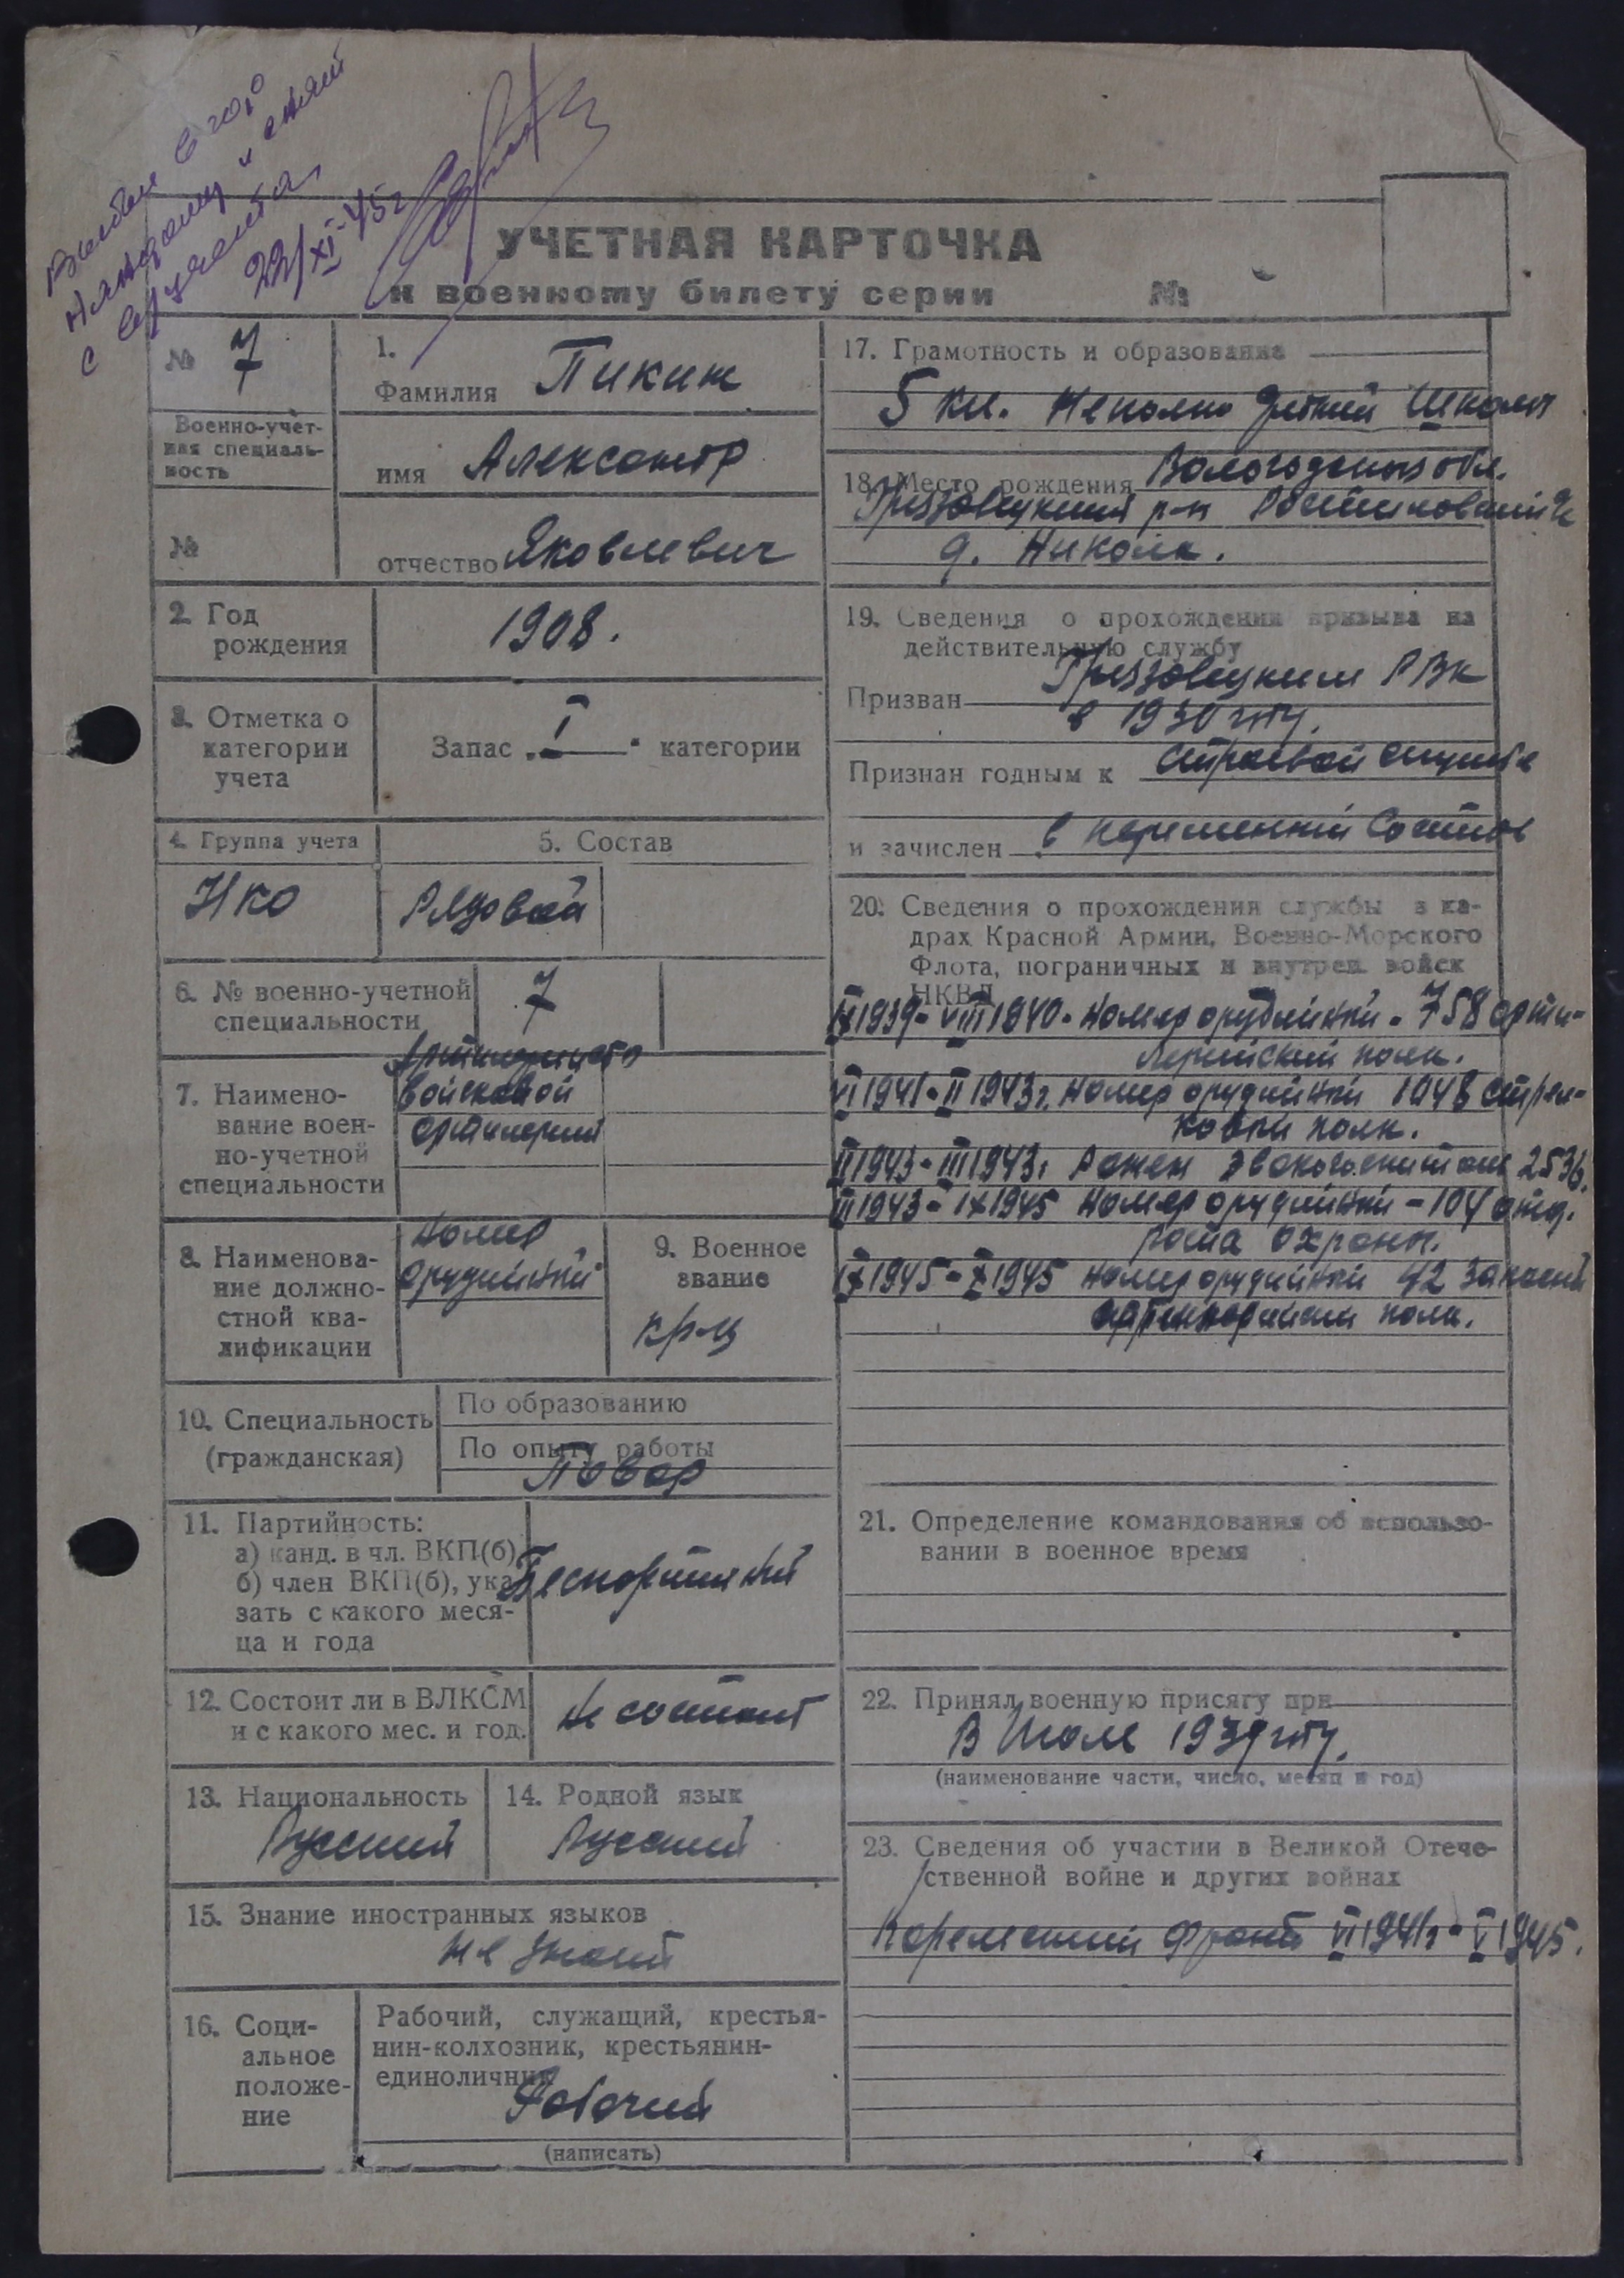 Выбыл в гор.
и снят
с вр учета
22/XI-45г
УЧЕТНАЯ КАРТОЧКА
к военному билету серии №
№ 7
Военно-учет-
ная специаль-
ность
№
1.
Фамилия Пикин
имя Александр
отчество Яковлевич
2. Год
рождения
1908.
3. Отметка о
категории
учета
Запас „I" категории
4. Группа учета
НКО
5. Состав
Рядовой
6. № военно-учетной
специальности
7
7. Наимено-
вание воен-
но-учетной
специальности
войсковой
артилерии
8. Наименова-
ние должно-
стной ква-
лификации
Номер
орудийный
9. Военное
звание
кр-ц
10. Специальность
(гражданская)
По образованию
По опыту работы
Повар
11. Партийность:
а) канд. в чл. ВКП(б)
б) член ВКП(б), ука-
зать с какого меся-
ца и года
Беспартийный
12. Состоит ли в ВЛКСМ
и с какого мес. и год.
Не состоит
13. Национальность
Русский
14. Родной язык
Русский
15. Знание иностранных языков
не знает
16. Соци-
альное
положе-
ние
Рабочий, служащий, крестья-
нин-колхозник, крестьянин-
единоличник
Рабочий
(написать)
17. Грамотность и образование
5 кл. Неполно Школы
18. Место рождения Вологодская обл.
Грязовецкий р-н
д. Никола.
19. Сведения о прохождении призыва на
действительную службу
Призван Грязовецким РВК
в 1930 году.
Признан годным к строевой службе
и зачислен в переменный состав
20. Сведения о прохождении службы в ка-
драх Красной Армии, Военно-Морского
Флота, пограничных и внутрен. войск
НКВД
IX 1939 - VIII 1940 - Номер орудийный - 758 арти-
лерийский полк.
VI 1941 - II 1943г. Номер орудийный 1048 стрел-
ковый полк.
II 1943 - III 1943г Ранен эвакогоспиталь 2536.
III 1943 - IX 1945 Номер орудийный - 104 отд.
рота охраны.
IX 1945 - X 1945 Номер орудийный 42 запасной
артиллерийский полк.
21. Определение командования об использо-
вании в военное время
22. Принял военную присягу при
В Июле 1939 году.
(наименование части, число, месяц и год)
23. Сведения об участии в Великой Отече-
ственной войне и других войнах
Карельский фронт VI 1941г - V 1945.